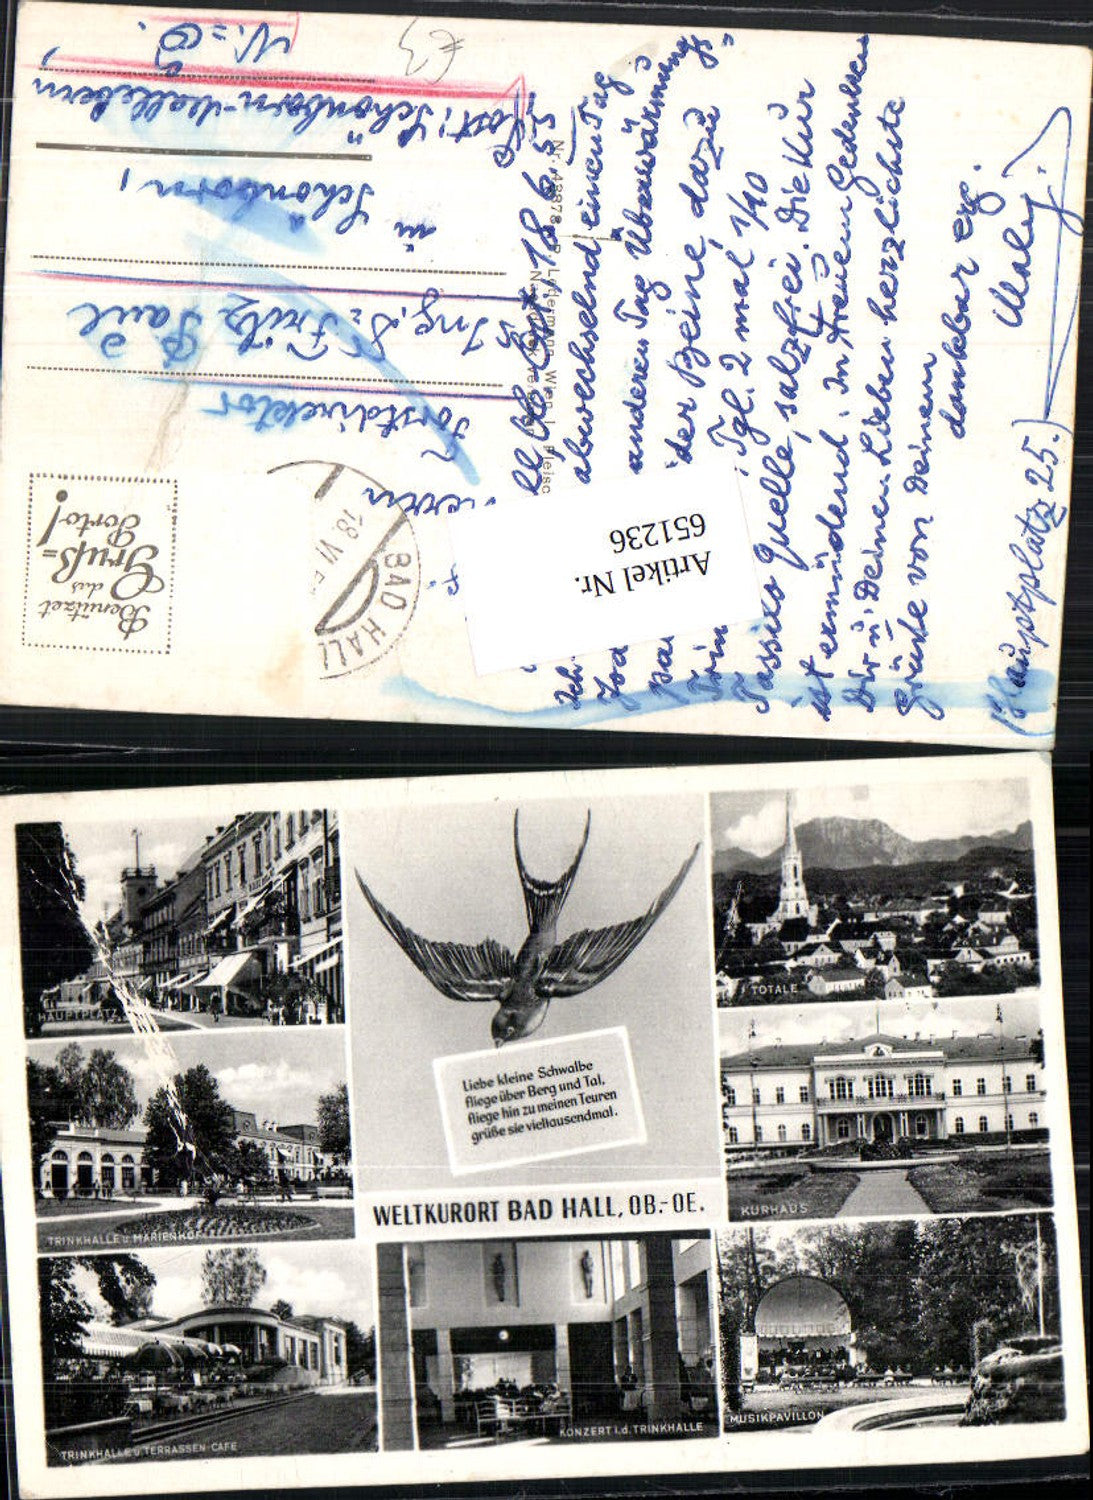 €3
Benützet
das
Gruß=
Porto!
BAD HALL
18. VI. 5
Forstdirektor
Ing. D: Fritz Paul
in Schönborn,
Post: Schönborn-Mallebern,
N.=Ö.
Artikel Nr.
651236
18. 6. 55.
abwechselnd einen Tag
anderen Tag Überwärmung
der Beine, dazu
Tgl. 2 mal 1/10
Tassilo Quelle, salzfrei. Die Kur
ist ermüdend. In treuem Gedenken
Dir u. Deinen Lieben herzlichste
Grüße von Deinem
dankbar erg.
Maly.
(Hauptplatz 25.)
HAUPTPLATZ
TRINKHALLE U. MARIENHOF
TRINKHALLE U. TERRASSEN-CAFE
Liebe kleine Schwalbe
fliege über Berg und Tal,
fliege hin zu meinen Teuren
grüße sie vieltausendmal.
WELTKURORT BAD HALL, OB.-OE.
KONZERT I. D. TRINKHALLE
TOTALE
KURHAUS
MUSIKPAVILLON